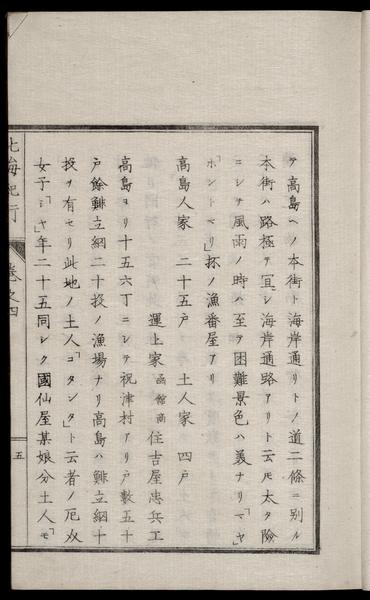 ヲ高島ヘノ本街ト海岸通リトノ道二條ニ別ル
本街ハ路極テ宜シ海岸通路アリト云𪜈太タ險
ニシテ風雨ノ時ハ至テ困難景色ハ美ナリ「マヤ
ホントマリ」抔ノ漁番屋アリ
高島人家 二十五戸 土人家 四戸
運上家 函館商 住吉屋忠兵工
高島ヨリ十五六丁ニシテ祝津村アリ戸數五十
戸餘鯡立網二十投ノ漁場ナリ高島ハ鯡立網十
投ヲ有セリ此地ノ土人「コタンタ」ト云者ノ厄介
女子「ミヤ」年二十五同シク國仙屋某娘分土人「モ
北海紀行 卷之四
五